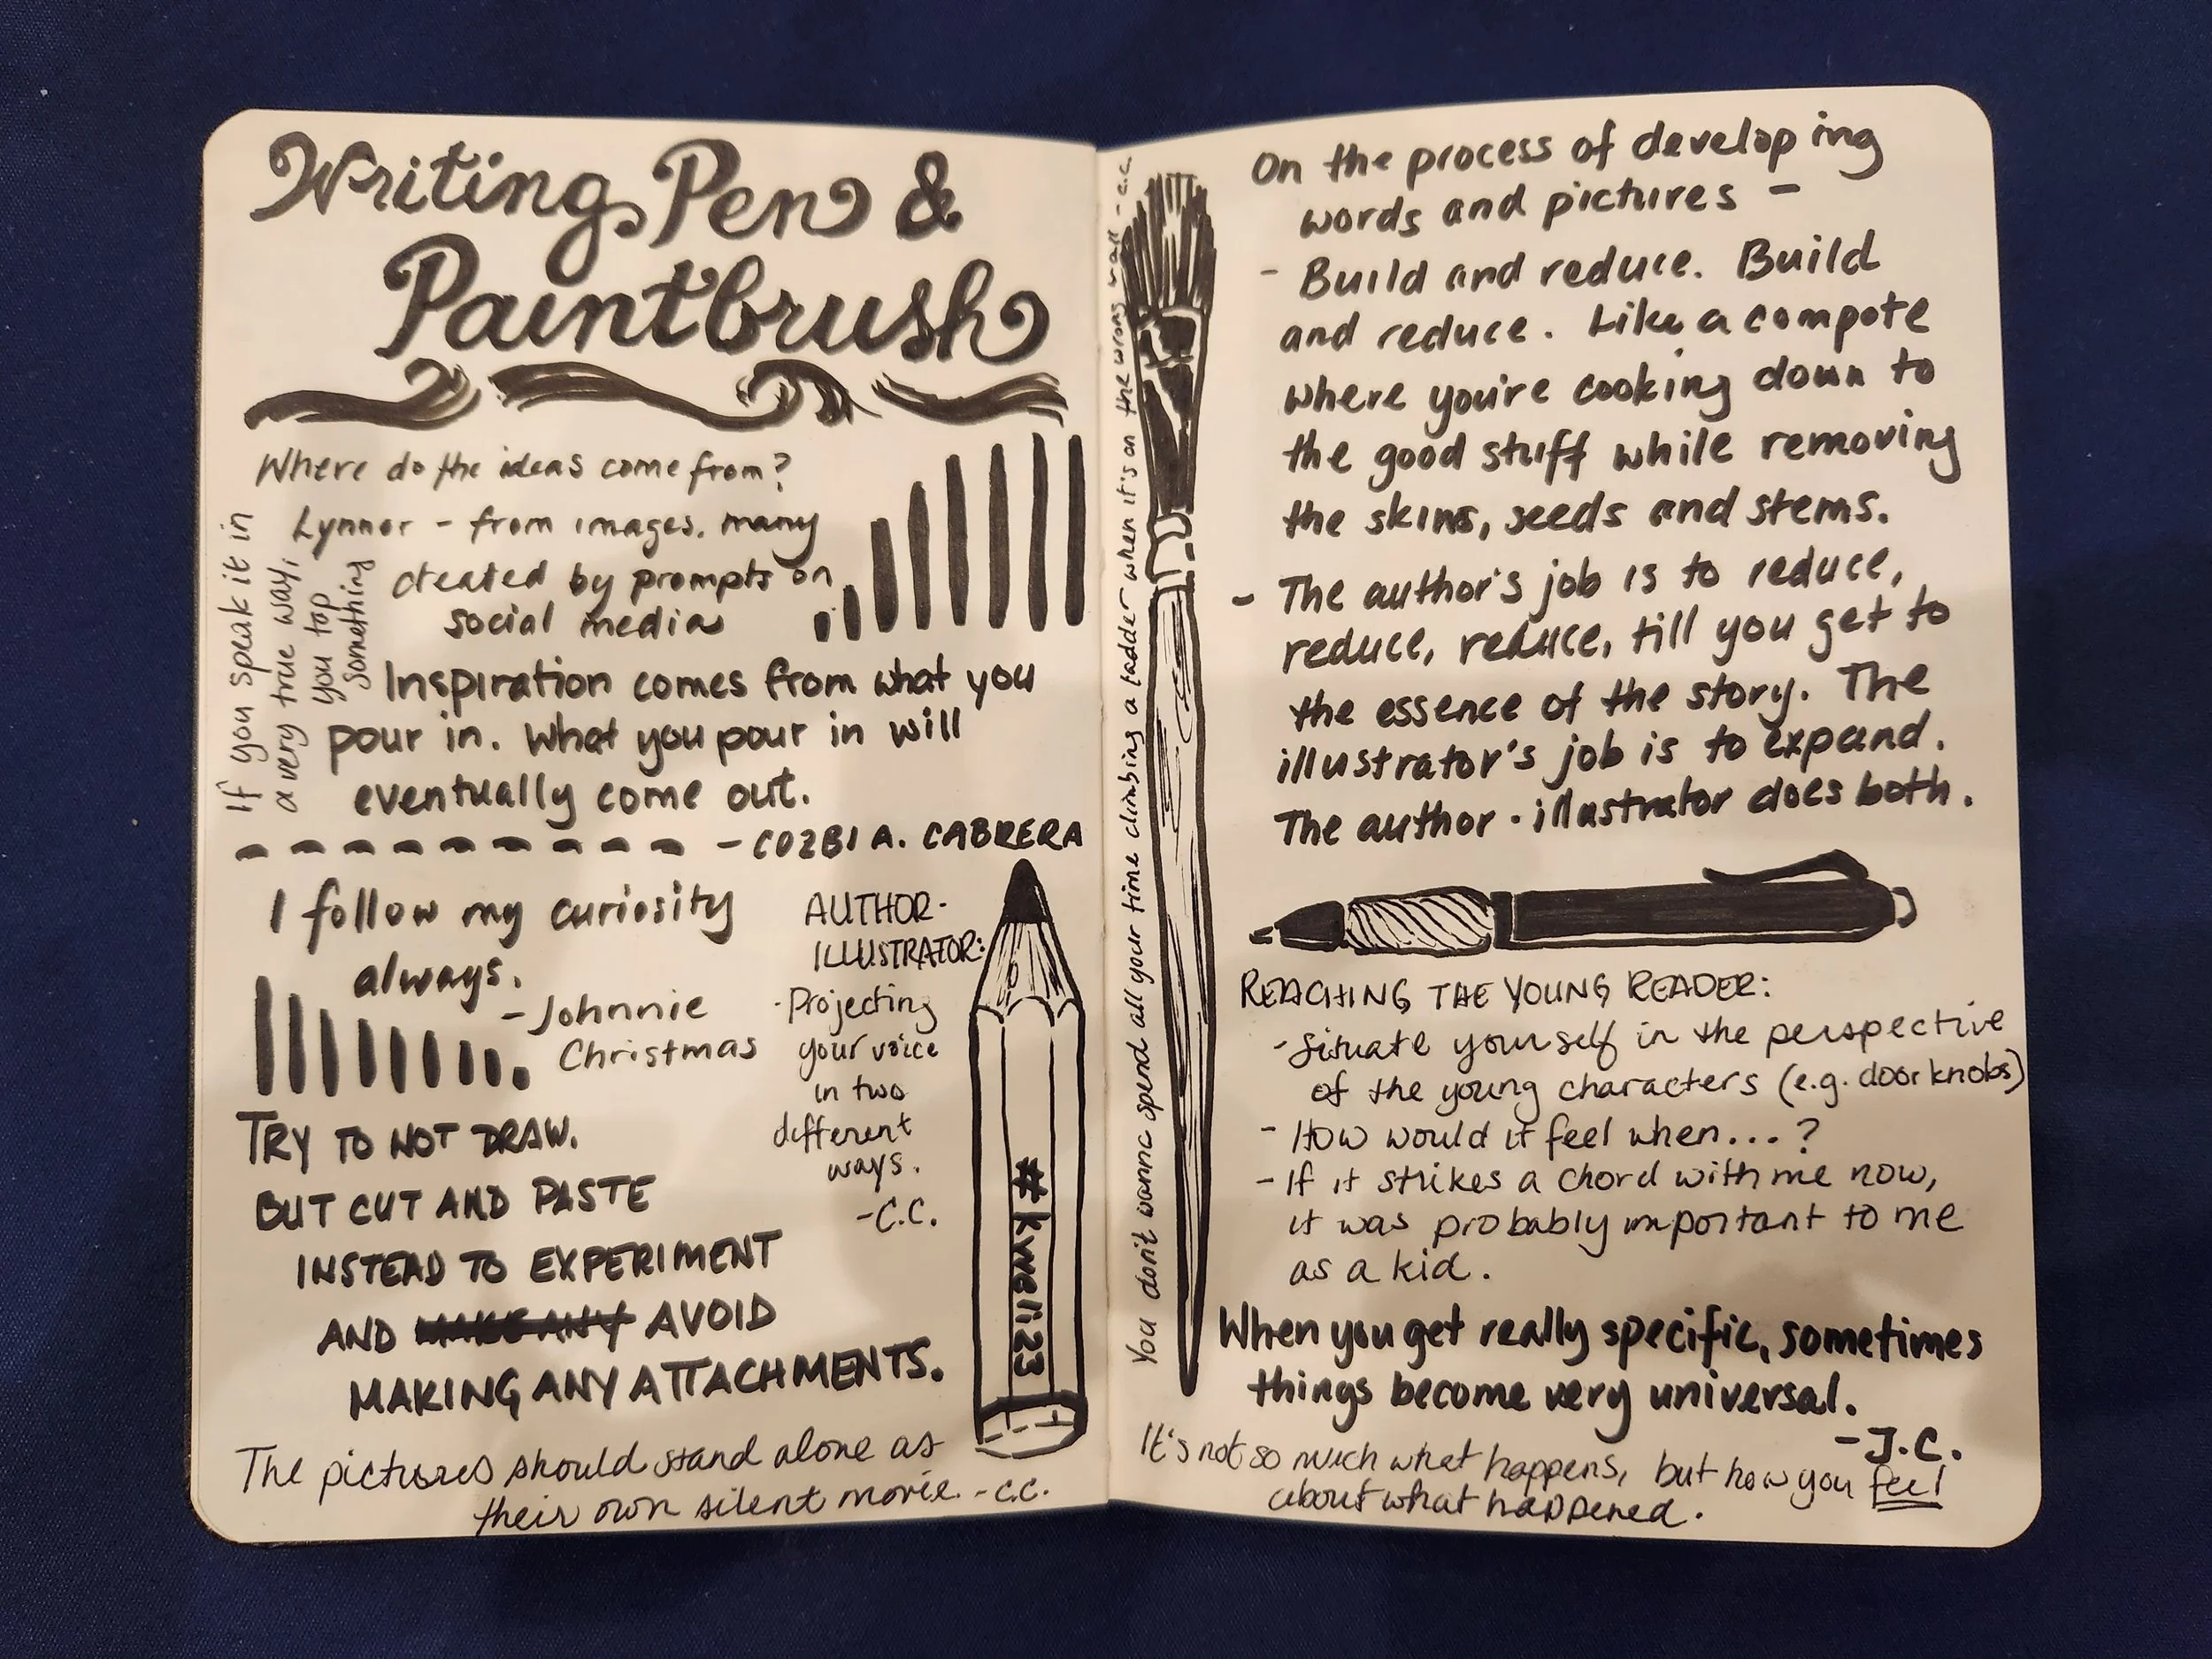 Writing Pen &
Paintbrush
Where do the ideas come from?
Lynnor - from images, many
created by prompts on
social media
If you speak it in
a very true way,
you tap
something
Inspiration comes from what you
pour in. What you pour in will
eventually come out.
- COZBI A. CABRERA
I follow my curiosity
always.
- Johnnie
Christmas
AUTHOR-
ILLUSTRATOR:
- Projecting
your voice
in two
different
ways.
- C.C.
#kweli23
TRY TO NOT DRAW.
BUT CUT AND PASTE
INSTEAD TO EXPERIMENT
AND MAKE ANY AVOID
MAKING ANY ATTACHMENTS.
The pictures should stand alone as
their own silent movie. - C.C.
You don't wanna spend all your time climbing a ladder when it's on the wrong wall - C.C.
On the process of developing
words and pictures -
- Build and reduce. Build
and reduce. Like a compote
where you're cooking down to
the good stuff while removing
the skins, seeds and stems.
- The author's job is to reduce,
reduce, reduce, till you get to
the essence of the story. The
illustrator's job is to expand.
The author-illustrator does both.
REACHING THE YOUNG READER:
- Situate yourself in the perspective
of the young characters (e.g. door knobs)
- How would it feel when...?
- If it strikes a chord with me now,
it was probably important to me
as a kid.
When you get really specific, sometimes
things become very universal.
- J.C.
It's not so much what happens, but how you feel
about what happened.